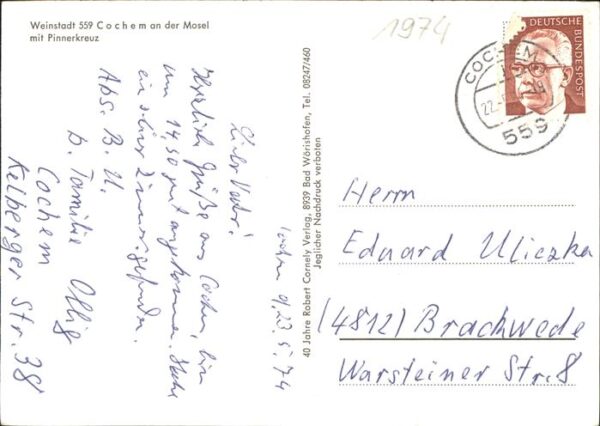 Weinstadt 559 Cochem an der Mosel
mit Pinnerkreuz
1974
DEUTSCHE
BUNDESPOST
COCHEM
22.
559
Cochem d. 22.5.74
Lieber Vater!
Herzliche Grüße aus Cochem, bin
um 14,30 gut angekommen. Habe
ein schönes Zimmer gefunden.
Abs. B. U.
b. Familie Ollig
Cochem
Kelberger Str. 38
40 Jahre Robert Cornely Verlag, 8939 Bad Wörishofen, Tel. 08247/460
Jeglicher Nachdruck verboten
Herrn
Eduard Uliczka
(4812) Brackwede
Warsteiner Str. 8